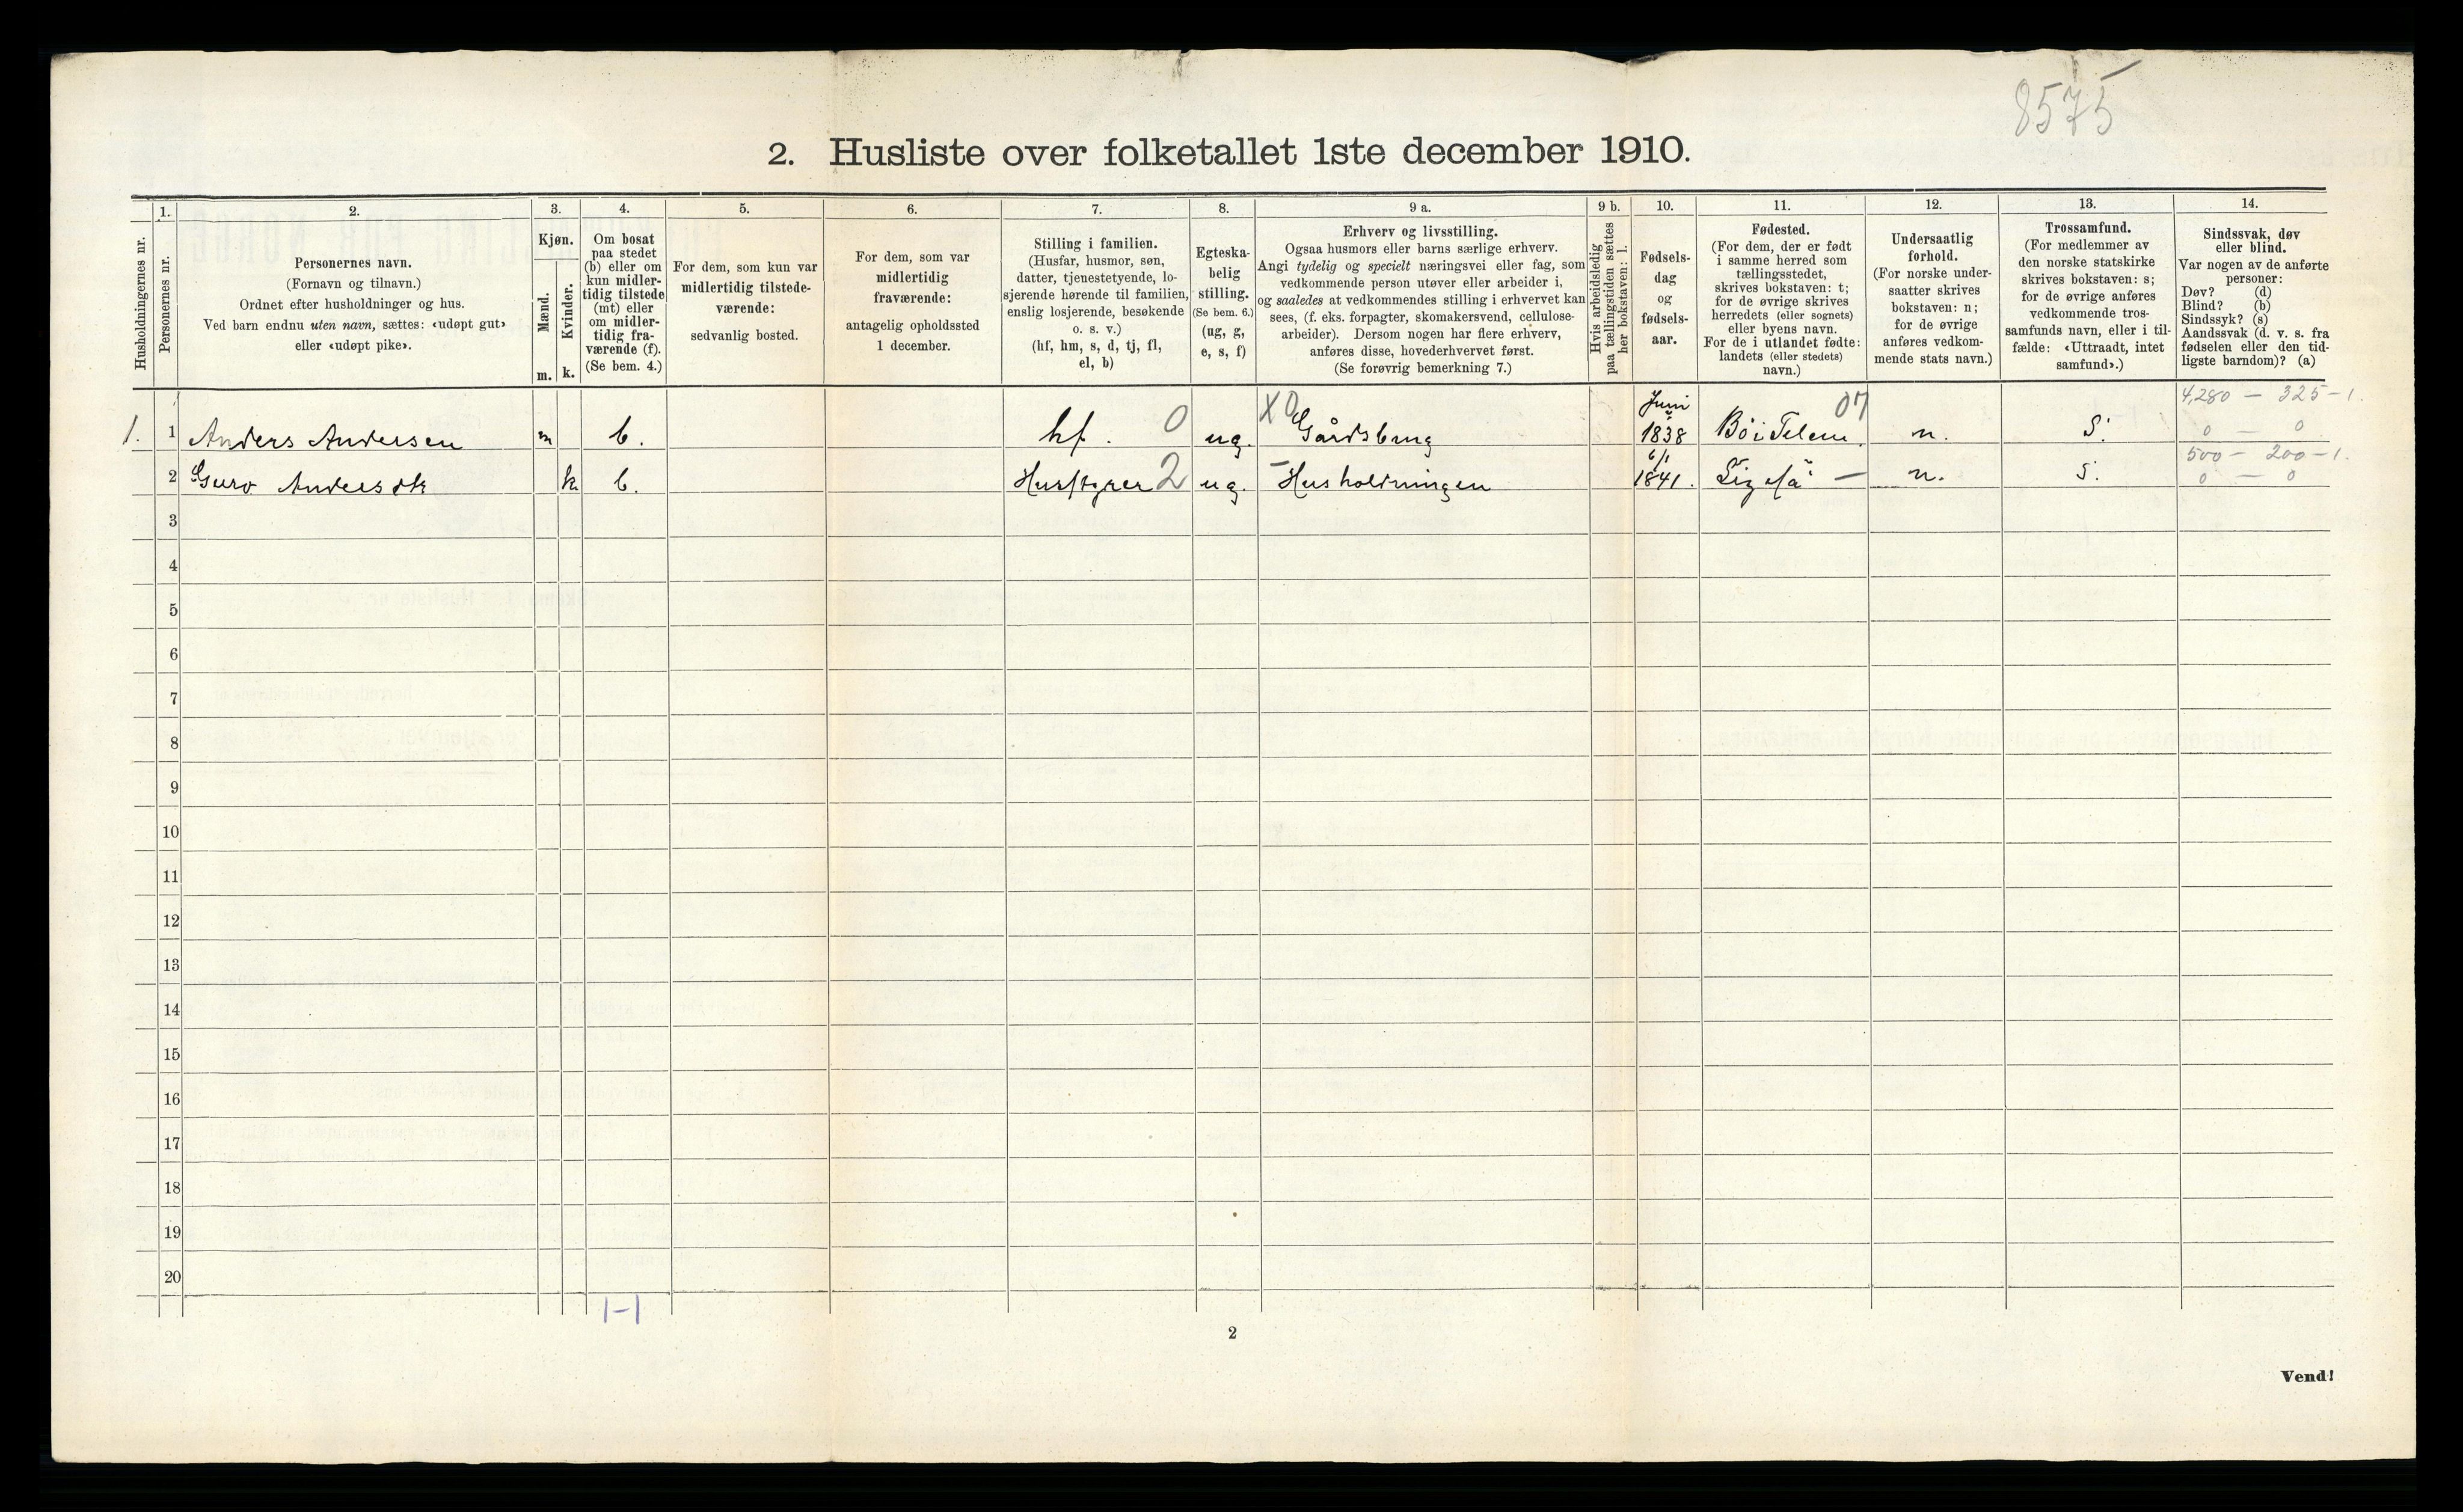 8575
2. Husliste over folketallet 1ste december 1910.
Husholdningernes nr.
1.
Personernes nr.
2.
Personernes navn.
(Fornavn og tilnavn.)
Ordnet efter husholdninger og hus.
Ved barn endnu uten navn, sættes: «udøpt gut»
eller «udøpt pike».
3.
Kjøn.
Mænd.
Kvinder.
m. k.
4.
Om bosat
paa stedet
(b) eller om
kun midler-
tidig tilstede
(mt) eller
om midler-
tidig fra-
værende (f).
(Se bem. 4.)
5.
For dem, som kun var
midlertidig tilstede-
værende:
sedvanlig bosted.
6.
For dem, som var
midlertidig
fraværende:
antagelig opholdssted
1 december.
7.
Stilling i familien.
(Husfar, husmor, søn,
datter, tjenestetyende, lo-
sjerende hørende til familien,
enslig losjerende, besøkende
o. s. v.)
(hf, hm, s, d, tj, fl,
el, b)
8.
Egteska-
belig
stilling.
(Se bem. 6.)
(ug, g,
e, s, f)
9 a.
Erhverv og livsstilling.
Ogsaa husmors eller barns særlige erhverv.
Angi tydelig og specielt næringsvei eller fag, som
vedkommende person utøver eller arbeider i,
og saaledes at vedkommendes stilling i erhvervet kan
sees, (f. eks. forpagter, skomakersvend, cellulose-
arbeider). Dersom nogen har flere erhverv,
anføres disse, hovederhvervet først.
(Se forøvrig bemerkning 7.)
9 b.
Hvis arbeidsledig
paa tællingstiden sættes
her bokstaven: l.
10.
Fødsels-
dag
og
fødsels-
aar.
11.
Fødested.
(For dem, der er født
i samme herred som
tællingsstedet,
skrives bokstaven: t;
for de øvrige skrives
herredets (eller sognets)
eller byens navn.
For de i utlandet fødte:
landets (eller stedets)
navn.)
12.
Undersaatlig
forhold.
(For norske under-
saatter skrives
bokstaven: n;
for de øvrige
anføres vedkom-
mende stats navn.)
13.
Trossamfund.
(For medlemmer av
den norske statskirke
skrives bokstaven: s;
for de øvrige anføres
vedkommende tros-
samfunds navn, eller i til-
fælde: «Uttraadt, intet
samfund».)
14.
Sindssvak, døv
eller blind.
Var nogen av de anførte
personer:
Døv? (d)
Blind? (b)
Sindssyk? (s)
Aandssvak (d. v. s. fra
fødselen eller den tid-
ligste barndom)? (a)
1. 1 Anders Andersen m b. hf. 0 ug. X0 Gårdsbrug Juni 1838 Bö i Telem. 07 n. S. 4,280 — 325 – 1.
0 — 0
2 Guro Andersdt k b. 2 ug. — Husholdningen 6/1 1841. — n. S. 500 — 200 – 1.
0 — 0
3
4
5
6
7
8
9
10
11
12
13
14
15
16
17
18
19
20
1–1
2
Vend!